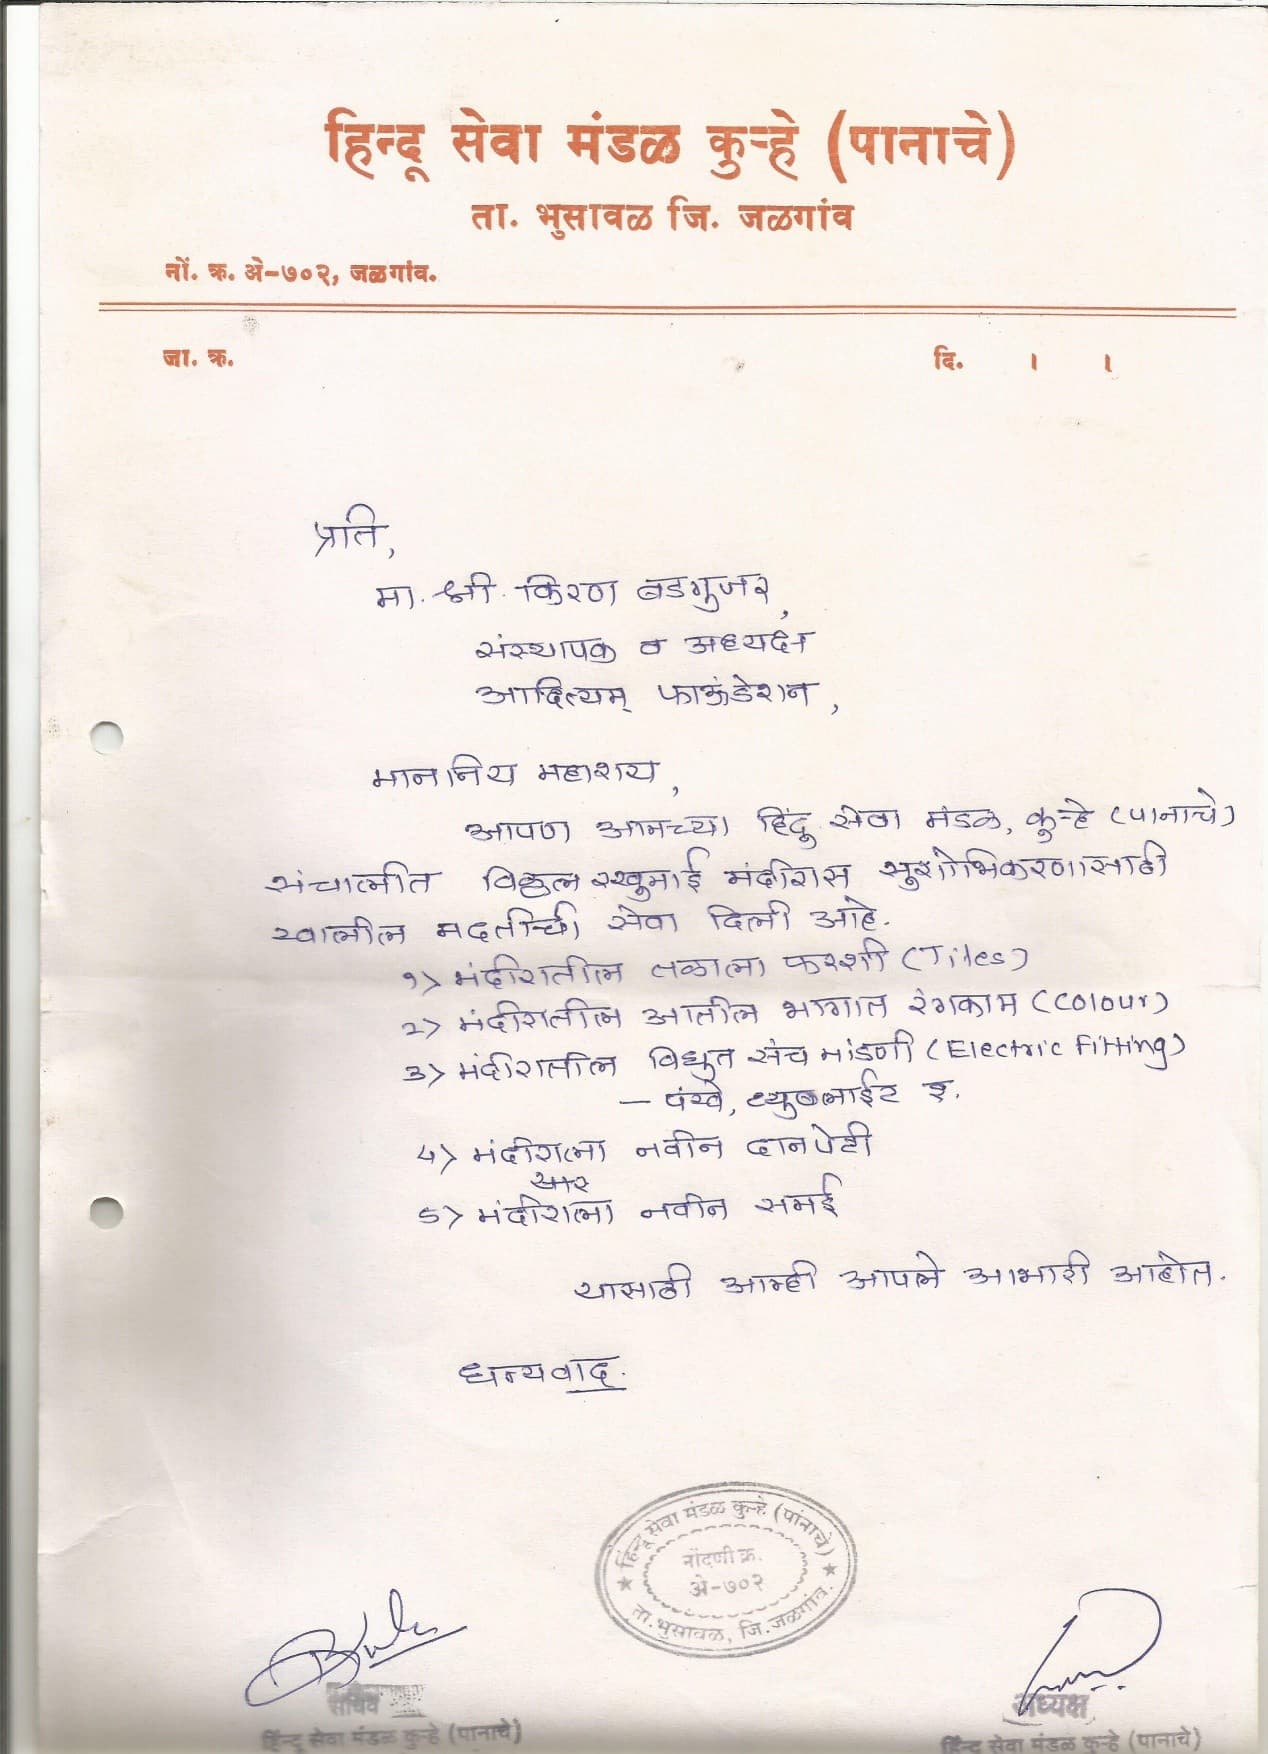 हिन्दू सेवा मंडळ कुऱ्हे (पानाचे)
ता. भुसावळ जि. जळगांव
नों. क्र. अे-७०२, जळगांव.
जा. क्र. दि. । ।
प्रति,
मा. श्री. किरण बडगुजर,
संस्थापक व अध्यक्ष
आदित्यम् फाऊंडेशन,
माननिय महाशय,
आपण आमच्या हिंदू सेवा मंडळ, कुऱ्हे (पानाचे)
संचालीत विठ्ठल रखुमाई मंदीरास सुशोभिकरणासाठी
खालील मदतीची सेवा दिली आहे.
१> मंदीरातील तळाला फरशी (Tiles)
२> मंदीरातील आतील भागात रंगकाम (Colour)
३> मंदीरातील विद्युत संच मांडणी (Electric Fitting)
— पंखे, ट्युबलाईट इ.
४> मंदीराला नवीन दानपेटी
५> मंदीराला नवीन समई
यासाठी आम्ही आपले आभारी आहोत.
धन्यवाद.
हिन्दू सेवा मंडळ कुऱ्हे (पांनाचे)
नोंदणी क्र.
अे-७०२
ता. भुसावळ, जि. जळगांव.
सचिव
हिन्दू सेवा मंडळ कुऱ्हे (पानाचे)
अध्यक्ष
हिन्दू सेवा मंडळ कुऱ्हे (पानाचे)